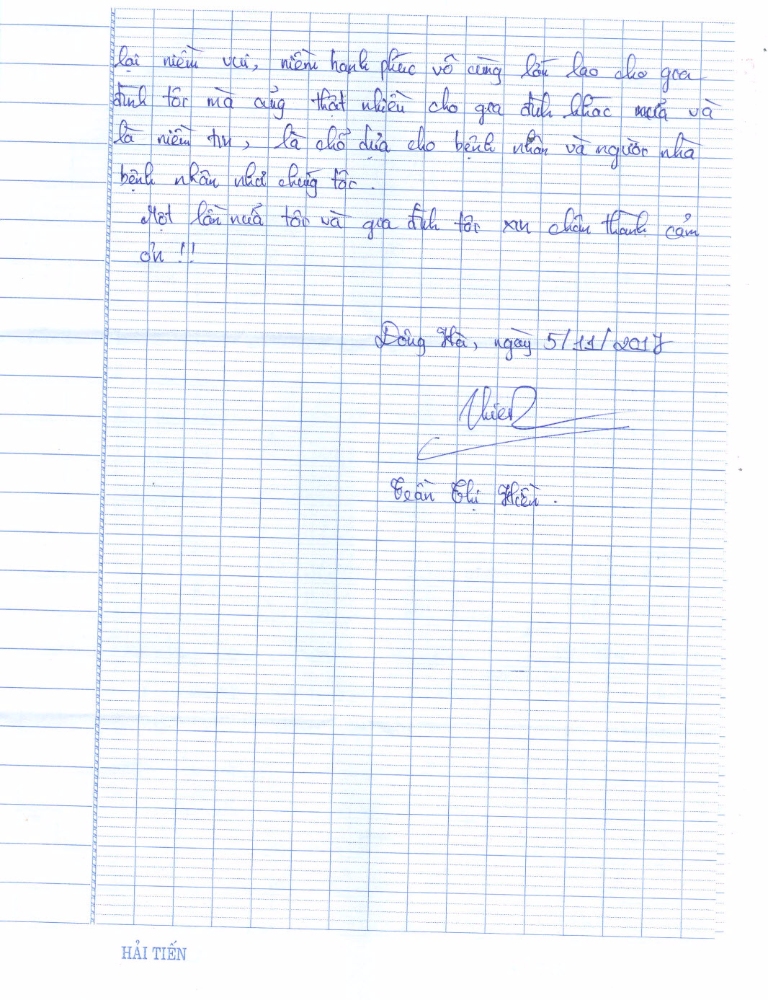 lại niềm vui, niềm hạnh phúc vô cùng lớn lao cho gia
đình tôi mà cũng thật nhiều cho gia đình khác nữa và
là niềm tin, là chổ dựa cho bệnh nhân và người nhà
bệnh nhân như chúng tôi.
Một lần nữa tôi và gia đình tôi xin chân thành cảm
ơn !!
Đông Hà, ngày 5/11/2017
Hiền
Trần Thị Hiền.
HẢI TIẾN